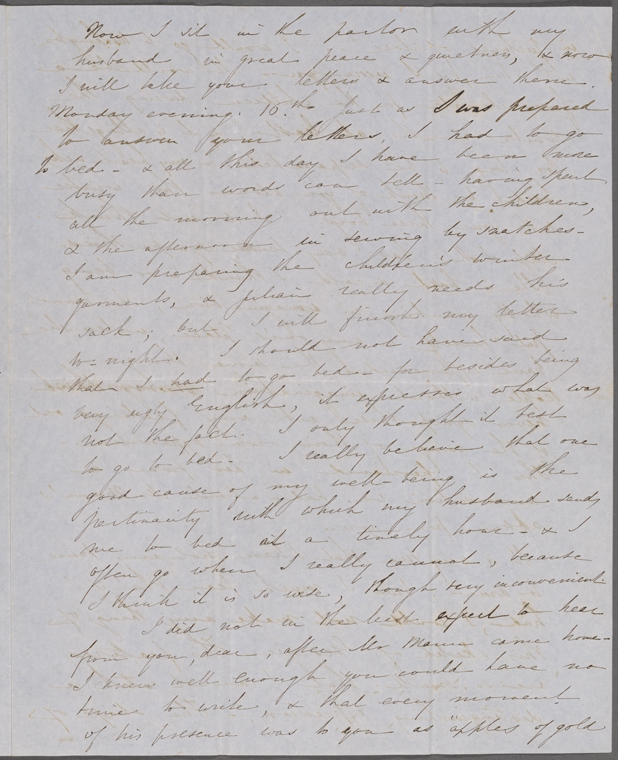 Now I sit in the parlor with my
husband in great peace & quietness, & now
I will take your letters & answer them.
Monday evening. 16.th Just as I was prepared
to answer your letters, I had to go
to bed - & all this day I have been more
busy than words can tell - having spent
all the morning out with the children,
& the afternoon in sewing by snatches -
I am preparing the children's winter
garments, & Julian really needs his
sack; but I will finish my letter
to-night. I should not have said
that I had to go bed - for besides being
very ugly English, it expresses what was
not the fact. I only thought it best
to go to bed - I really believe that one
good cause of my well-being is the
pertinacity with which my husband sends
me to bed at a timely hour - & I
often go when I really cannot, because
I think it is so wise, though very inconvenient.
I did not in the least expect to hear
from you, dear, after Mr Mann came home -
I knew well enough you could have no
time to write, & that every moment
of his presence was to you as "apples of gold